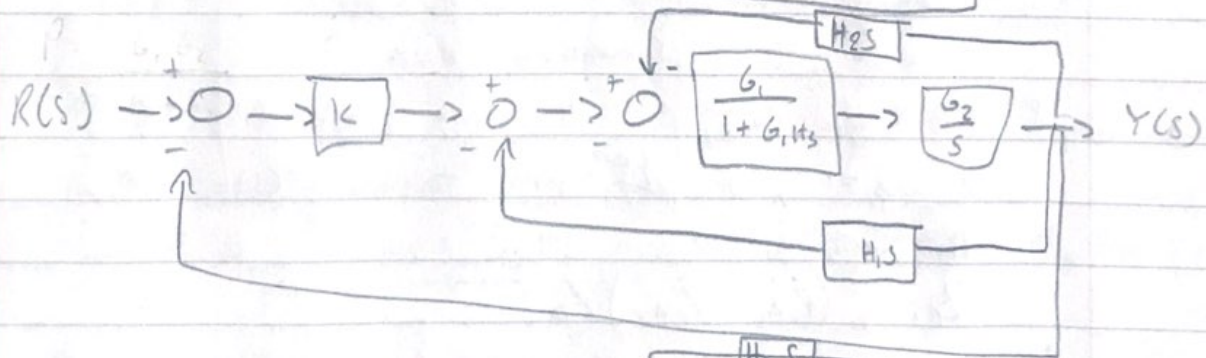 H2S
R(S) + - K + - + - - G1 / 1 + G1H3 G2 / S Y(S)
H1S
H S